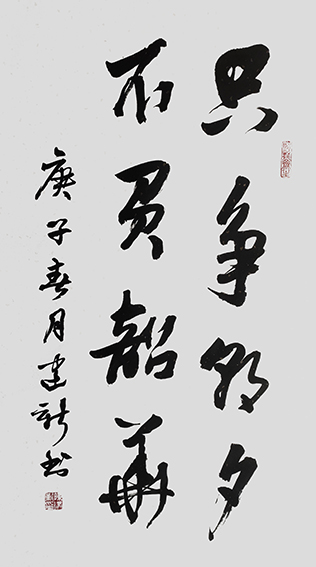 只争朝夕
不负韶华
庚子春月建新书